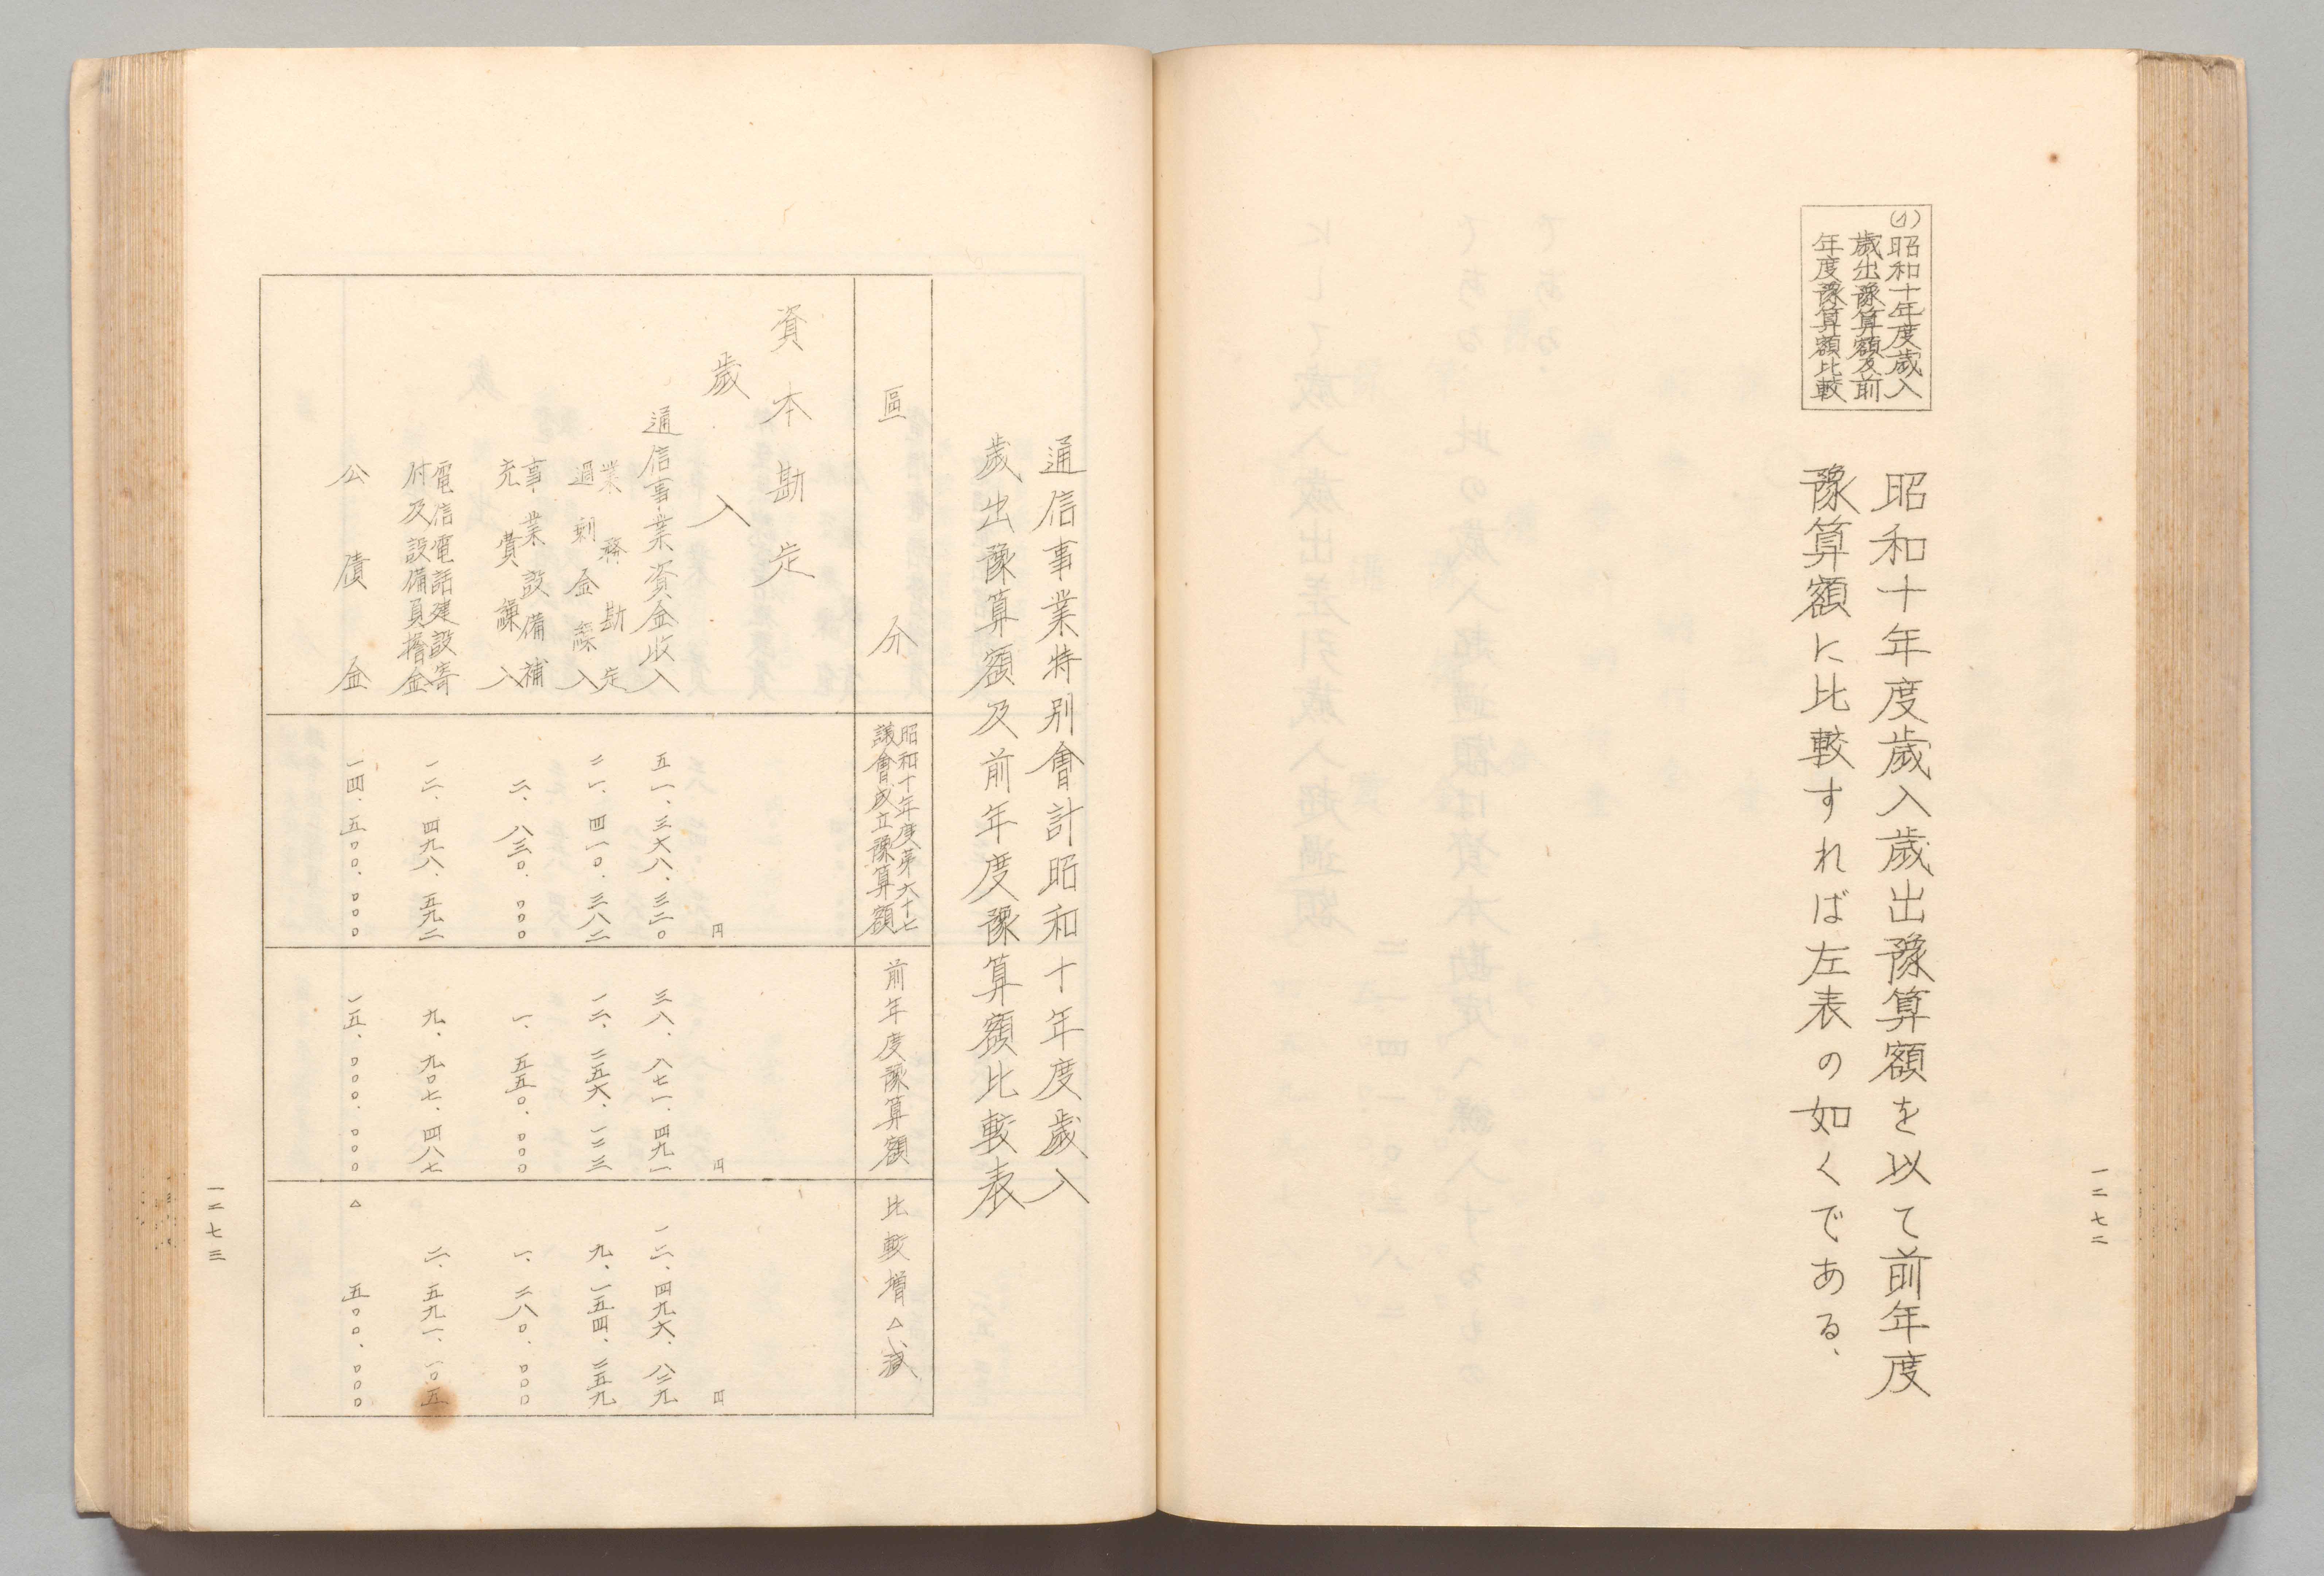 (イ)昭和十年度歲入
歲出豫算額及前
年度豫算額比較
昭和十年度歲入歲出豫算額を以て前年度
豫算額に比較すれば左表の如くである、
一二七二
通信事業特別會計昭和十年度歲入
歲出豫算額及前年度豫算額比較表
區分
昭和十年度第六十七
議會成立豫算額
前年度豫算額
比較增△減
資本勘定
歲入
円
円
円
通信事業資金收入
五一、三六八、三二〇
三八、八七一、四九一
一二、四九六、八二九
業務勘定
過剰金繰入
二一、四一〇、三八二
一二、二五六、一二三
九、一五四、二五九
事業設備補
充費繰入
二、八三〇、〇〇〇
一、五五〇、〇〇〇
一、二八〇、〇〇〇
電信電話建設寄
付及設備負擔金
一二、四九八、五九二
九、九〇七、四八七
二、五九一、一〇五
公債金
一四、五〇〇、〇〇〇
一五、〇〇〇、〇〇〇
△五〇〇、〇〇〇
一二七三